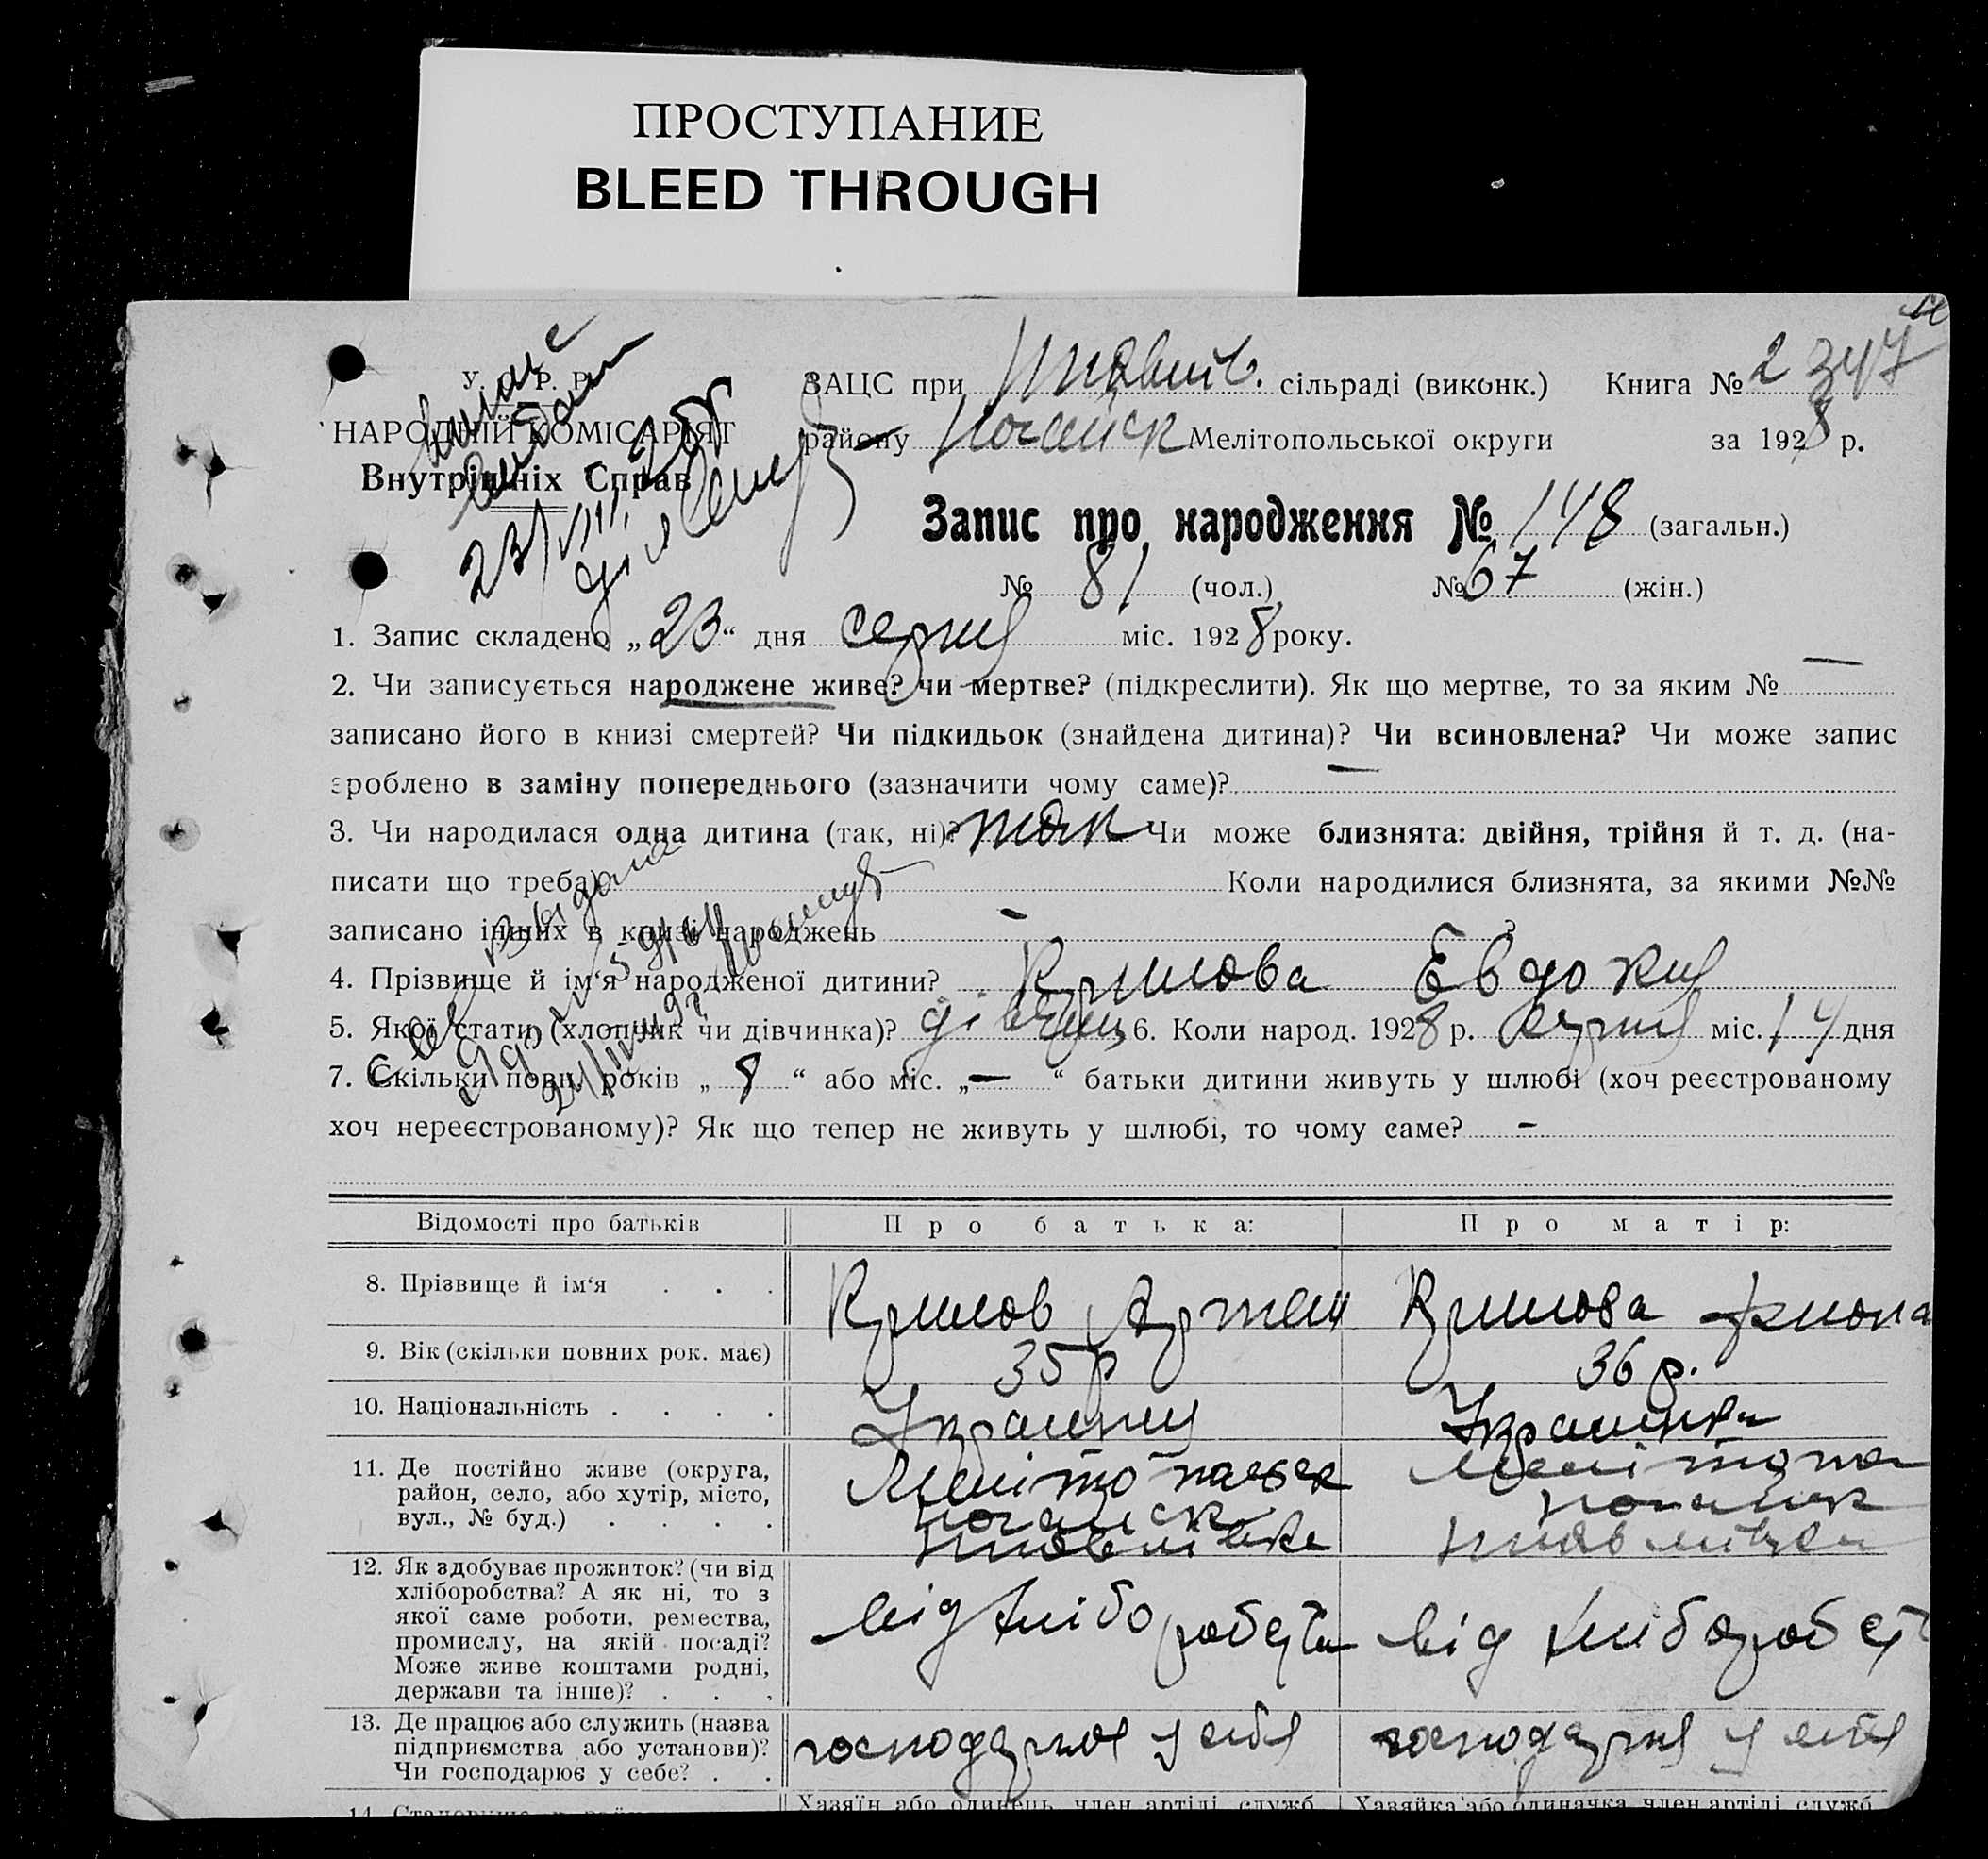 ПРОСТУПАНИЕ
BLEED THROUGH
У. Р. Р.
НАРОДНІЙ КОМІСАРІЯТ
Внутрішніх Справ
ЗАЦС при сільраді (виконк.) Книга № 2 347
району Ногайск Мелітопольської округи за 1928 р.
23/VIII
Запис про народження № 148 (загальн.)
№ 81 (чол.) № 67 (жін.)
1. Запис складено „23“ дня серпня міс. 1928 року.
2. Чи записується народжене живе? чи мертве? (підкреслити). Як що мертве, то за яким № —
записано його в книзі смертей? Чи підкидьок (знайдена дитина)? Чи всиновлена? Чи може запис
зроблено в заміну попереднього (зазначити чому саме)? —
3. Чи народилася одна дитина (так, ні)? так Чи може близнята: двійня, трійня й т. д. (на-
писати що треба) Коли народилися близнята, за якими №№
записано інших в книзі народжень —
4. Прізвище й ім‘я народженої дитини? Крилова Евдокия
5. Якої стати (хлопчик чи дівчинка)? 6. Коли народ. 1928 р. серпня міс. 14 дня
7. Скільки повн. років „ 8 “ або міс. „ — “ батьки дитини живуть у шлюбі (хоч реєстрованому
хоч нереєстрованому)? Як що тепер не живуть у шлюбі, то чому саме? -
Відомості про батьків Про батька: Про матір:
8. Прізвище й ім‘я . . . Крилов Артем Крилова
9. Вік (скільки повних рок. має) 35 р 36 р.
10. Національність . . . . Українец Украинка
11. Де постійно живе (округа,
район, село, або хутір, місто,
вул., № буд.) . . . .
Мелітопольск
Ногайск
Мелітопол
Ногайск
12. Як здобуває прожиток? (чи від
хліборобства? А як ні, то з
якої саме роботи, ремества,
промислу, на якій посаді?
Може живе коштами родні,
держави та інше)? . . .
від хліборобства від хліборобст
13. Де працює або служить (назва
підприємства або установи)?
Чи господарює у себе? . .
господарює у себя господарює у себя
Хазяїн або одинець, член артілі, служб. Хазяйка або одиначка, член артілі, служб.